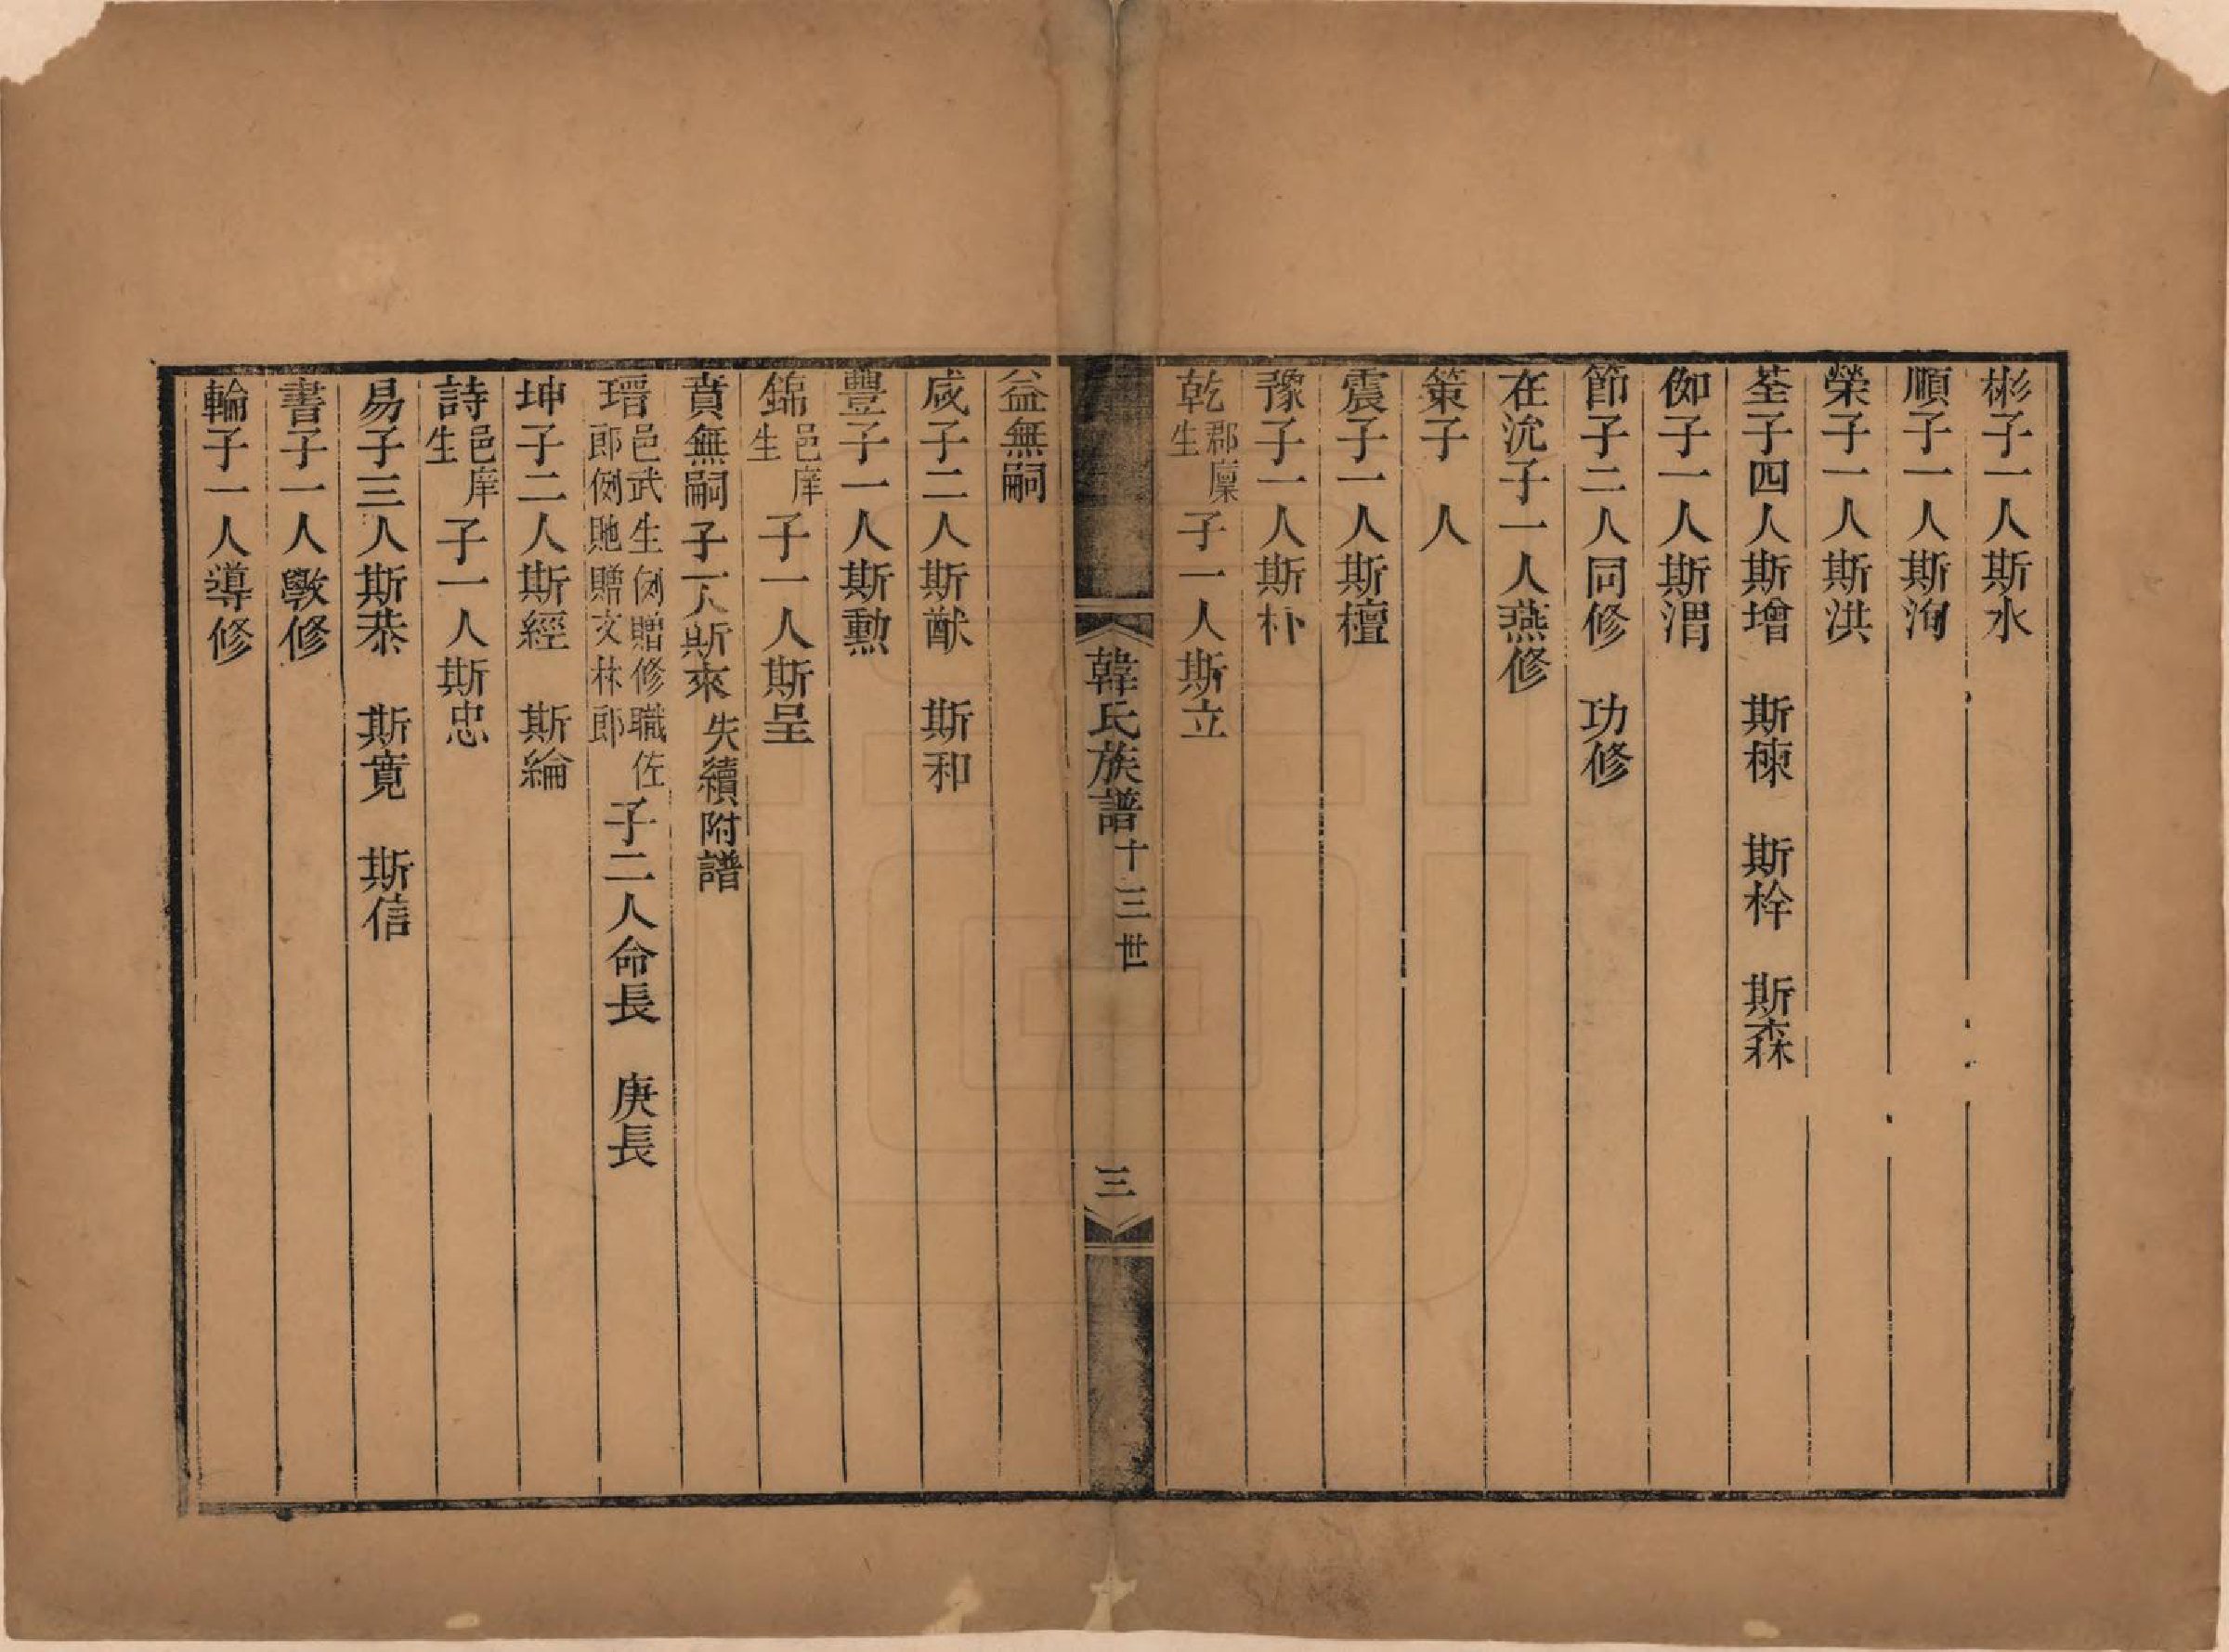 彬子一人斯水
順子一人斯洵
榮子一人斯洪
荃子四人斯增　斯楝　斯栓　斯森
伮子一人斯渭
節子二人同修　功修
在沇子一人燕修
策子　人
震子一人斯檀
豫子一人斯朴
乾郡廩生子一人斯立
韓氏族譜十三世　三
益無嗣
咸子二人斯猷　斯和
豐子一人斯勲
錦邑庠生子一人斯呈
賁無嗣子一人斯來失續附譜
瑨邑武生例贈修職佐郎例貤贈文林郎子二人命長　庚長
坤子二人斯經　斯綸
詩邑庠生子一人斯忠
易子三人斯恭　斯寬　斯信
書子一人斆修
輪子一人導修